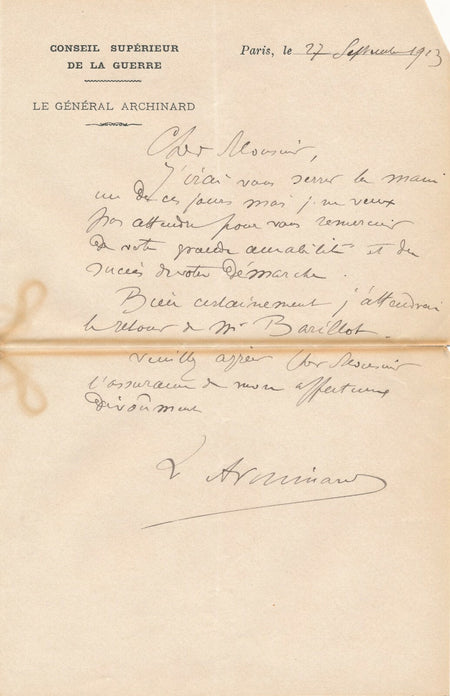 CONSEIL SUPÉRIEUR
DE LA GUERRE
LE GÉNÉRAL ARCHINARD
Paris, le 27 Septembre 1913
Cher Monsieur,
J'irai vous serrer la main
un de ces jours mais je ne veux
pas attendre pour vous remercier
de votre grande amabilité et du
succès de votre démarche.
Bien certainement j'attendrai
le retour de Mr Barillot.
Veuillez agréer Cher Monsieur
l'assurance de mon affectueux
dévoûment
L Archinard